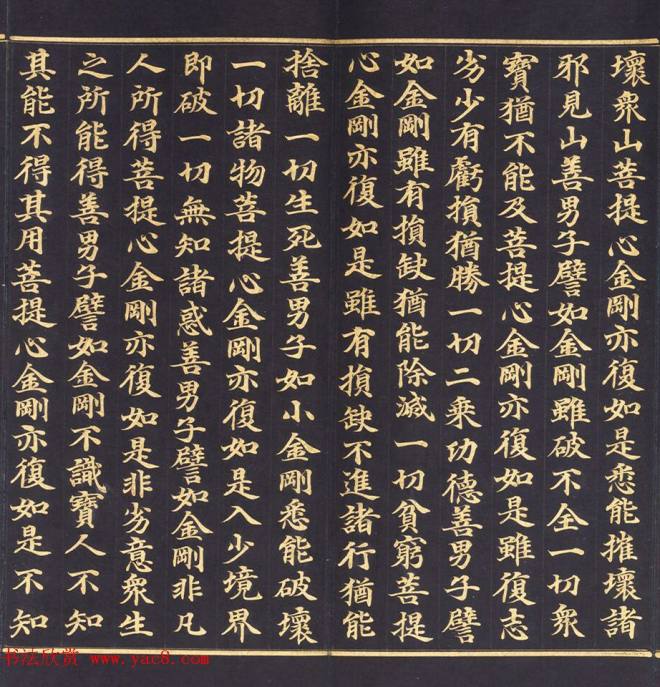 壞衆山菩提心金剛亦復如是悉能摧壞諸
邪見山善男子譬如金剛雖破不全一切衆
寶猶不能及菩提心金剛亦復如是雖復志
劣少有虧損猶勝一切二乘功德善男子譬
如金剛雖有損缺猶能除滅一切貧窮菩提
心金剛亦復如是雖有損缺不進諸行猶能
捨離一切生死善男子如小金剛悉能破壞
一切諸物菩提心金剛亦復如是入少境界
即破一切無知諸惑善男子譬如金剛非凡
人所得菩提心金剛亦復如是非劣意衆生
之所能得善男子譬如金剛不識寶人不知
其能不得其用菩提心金剛亦復如是不知
书法欣赏 www.yac8.com